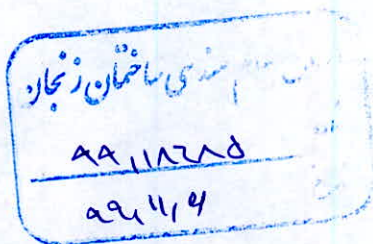 نظام مهندسی ساختمان زنجان
۹۹,۱۱۸۲۸۵
۹۹,۱۱,۶